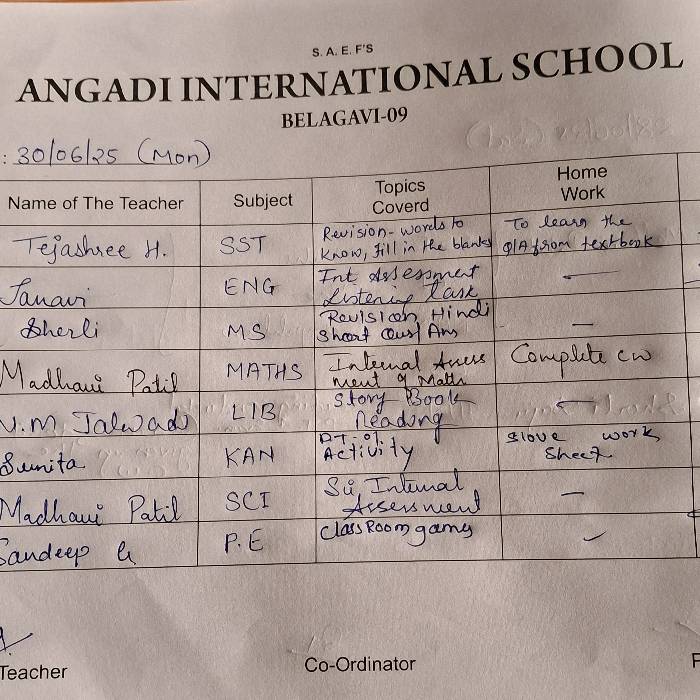 S. A. E. F'S
ANGADI INTERNATIONAL SCHOOL
BELAGAVI-09
: 30/06/25 (Mon)
Name of The Teacher Subject Topics Coverd Home Work
Tejashree H. SST Revision - words to know, fill in the blanks To learn the Q/A from textbook
Janavi ENG Int Assessment Listening Task —
Sherli MS Revision Hindi Short Ques/Ans —
Madhavi Patil MATHS Internal Assessment of Maths Complete CW
V.M. Jalwadi LIB Story Book Reading —
Sunita KAN Activity slove work Sheet
Madhavi Patil SCI Sci Internal Assessment —
Sandeep G P.E Class Room games
Teacher Co-Ordinator